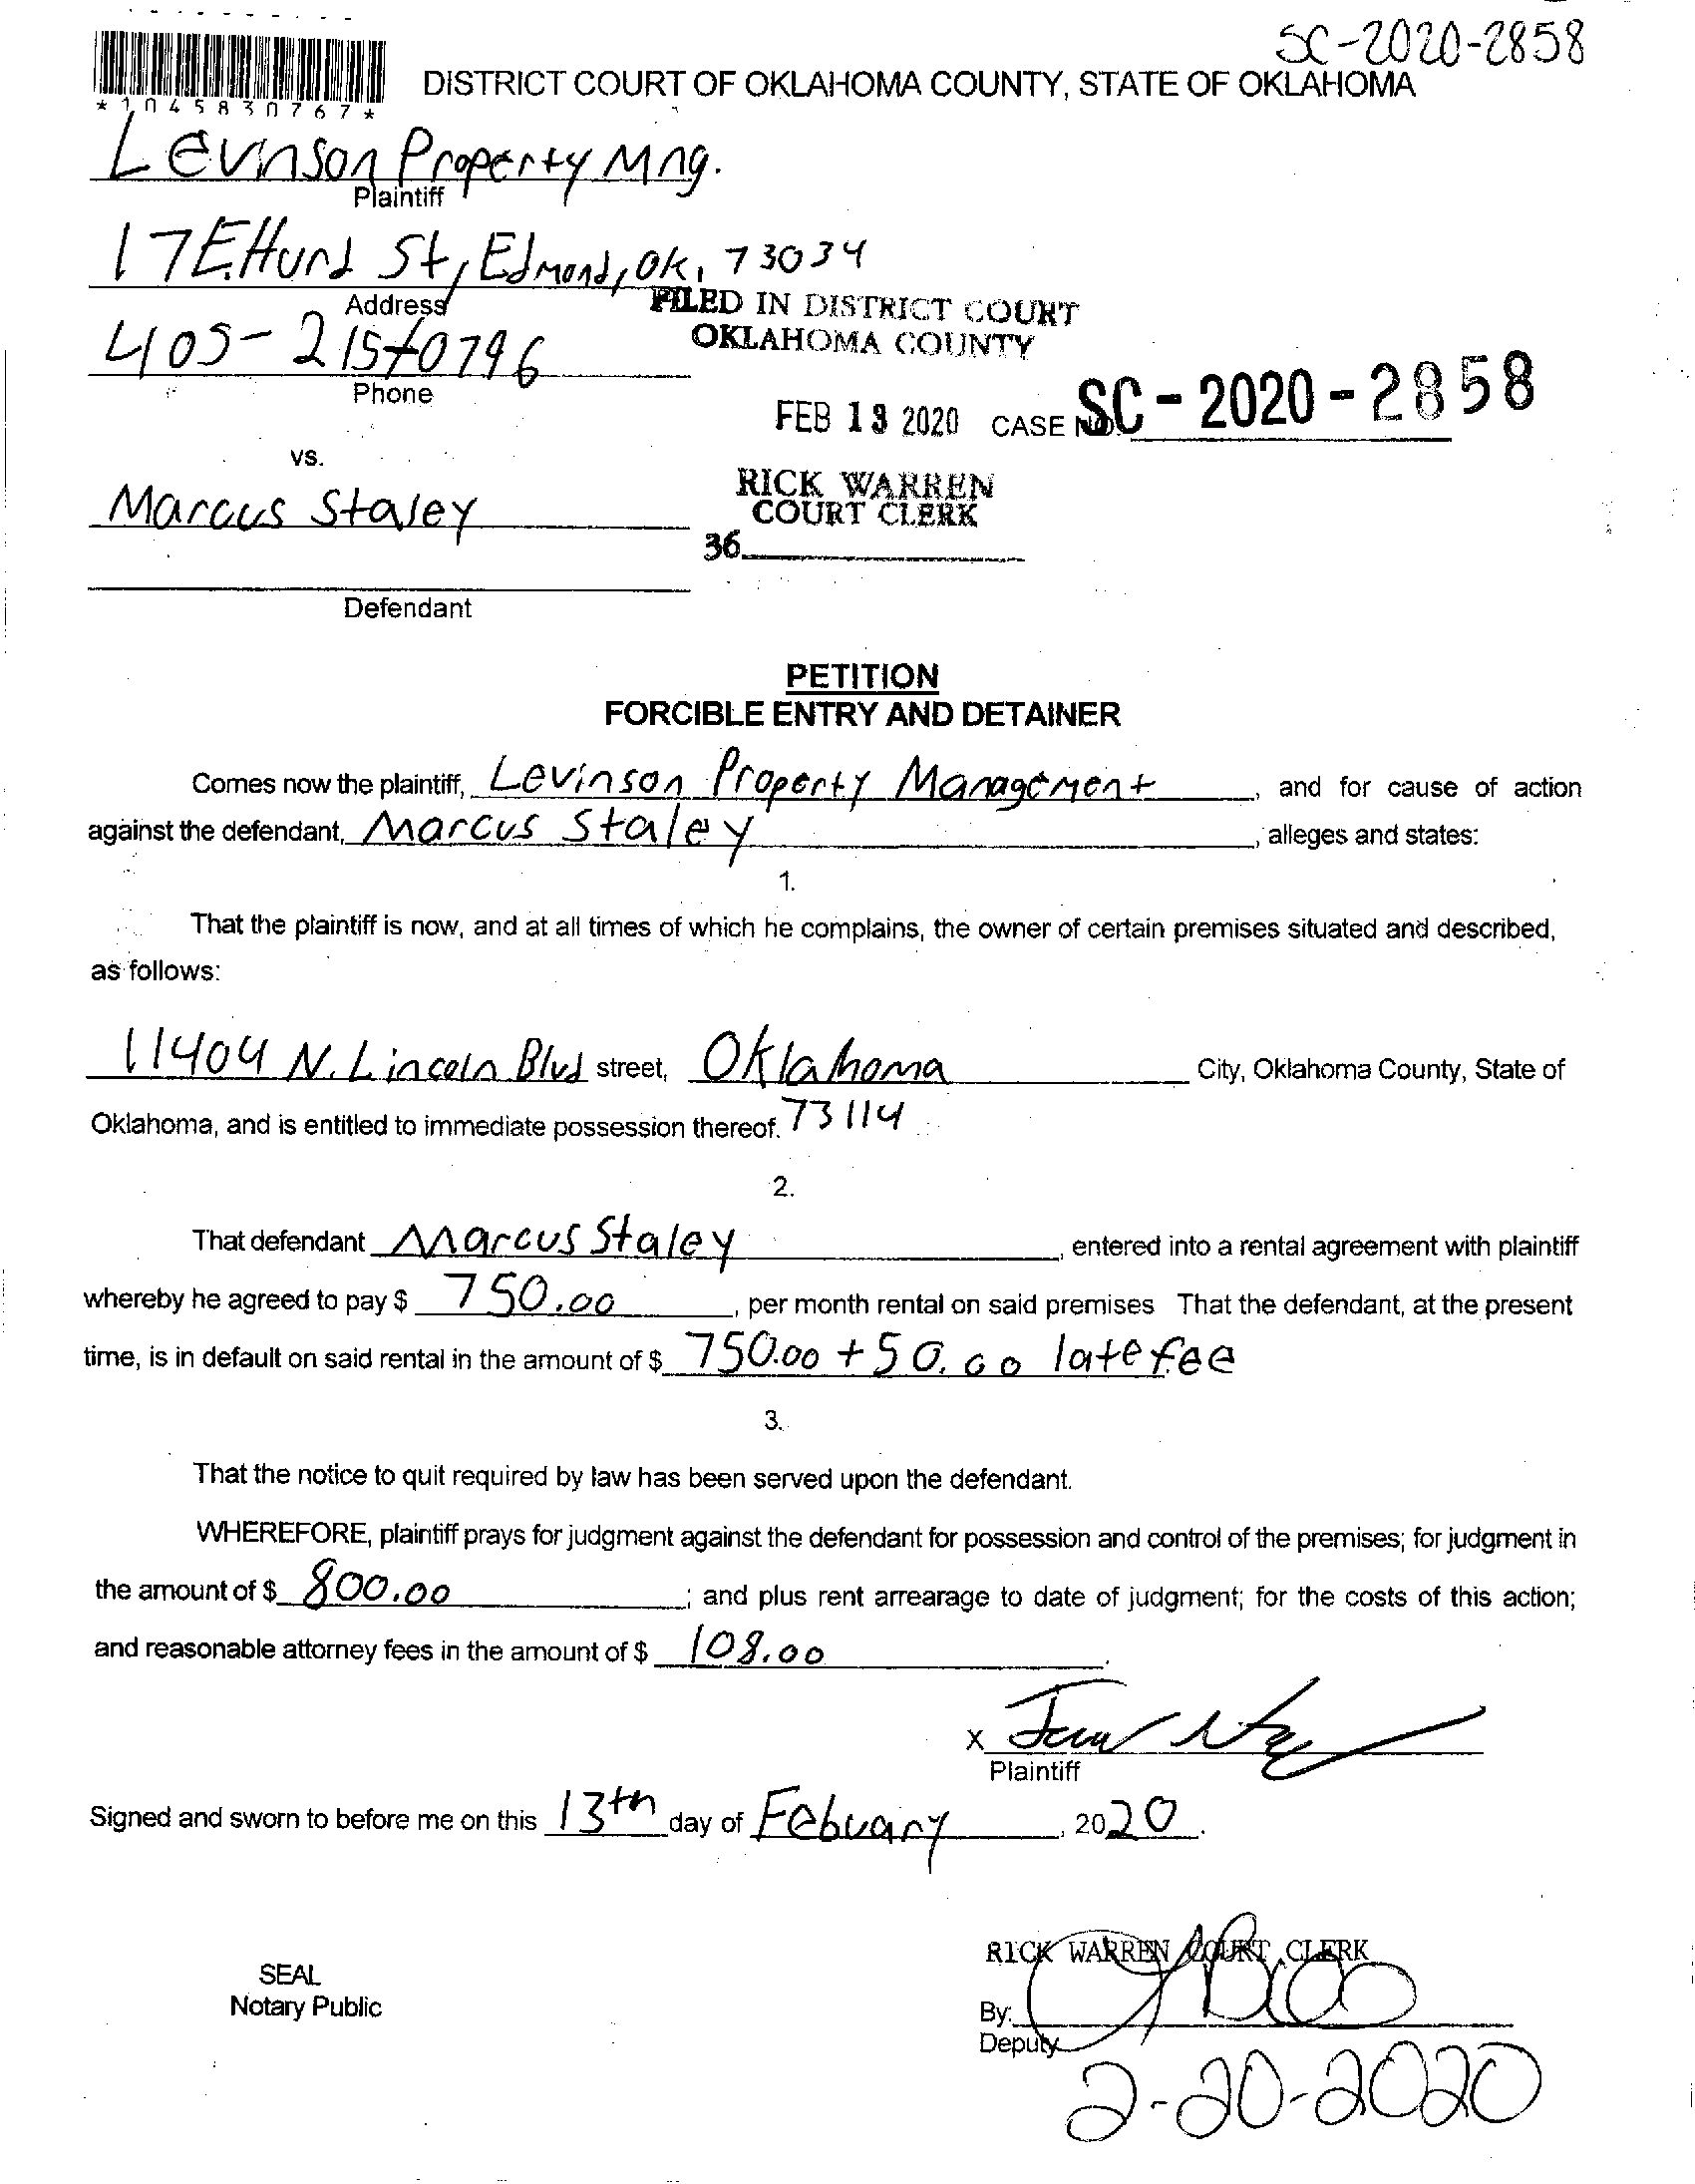 SC-2020-2858
*1045830767*
DISTRICT COURT OF OKLAHOMA COUNTY, STATE OF OKLAHOMA
Levinson Property Mng.
Plaintiff
17 E. Hurd St, Edmond, OK, 73034
Address
FILED IN DISTRICT COURT
OKLAHOMA COUNTY
405-215-0796
Phone
FEB 13 2020 CASE NO. SC-2020-2858
vs.
RICK WARREN
COURT CLERK
Marcus Staley
36
Defendant
PETITION
FORCIBLE ENTRY AND DETAINER
Comes now the plaintiff, Levinson Property Management, and for cause of action
against the defendant, Marcus Staley, alleges and states:
1.
That the plaintiff is now, and at all times of which he complains, the owner of certain premises situated and described,
as follows:
11404 N. Lincoln Blvd street, Oklahoma City, Oklahoma County, State of
Oklahoma, and is entitled to immediate possession thereof. 73114
2.
That defendant Marcus Staley, entered into a rental agreement with plaintiff
whereby he agreed to pay $ 750.00, per month rental on said premises That the defendant, at the present
time, is in default on said rental in the amount of $ 750.00 + 50.00 late fee
3.
That the notice to quit required by law has been served upon the defendant.
WHEREFORE, plaintiff prays for judgment against the defendant for possession and control of the premises; for judgment in
the amount of $ 800.00; and plus rent arrearage to date of judgment; for the costs of this action;
and reasonable attorney fees in the amount of $ 108.00.
X
Plaintiff
Signed and sworn to before me on this 13th day of Febuary, 2020.
RICK WARREN COURT CLERK
SEAL
Notary Public
By:
Deputy
2-20-2020